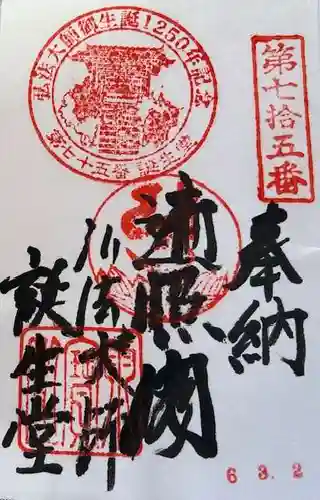 弘法大師御生誕1250年記念
第七十五番 誕生院
第七拾五番
奉納
遍照閣
弘法大師
誕生堂
6 3. 2